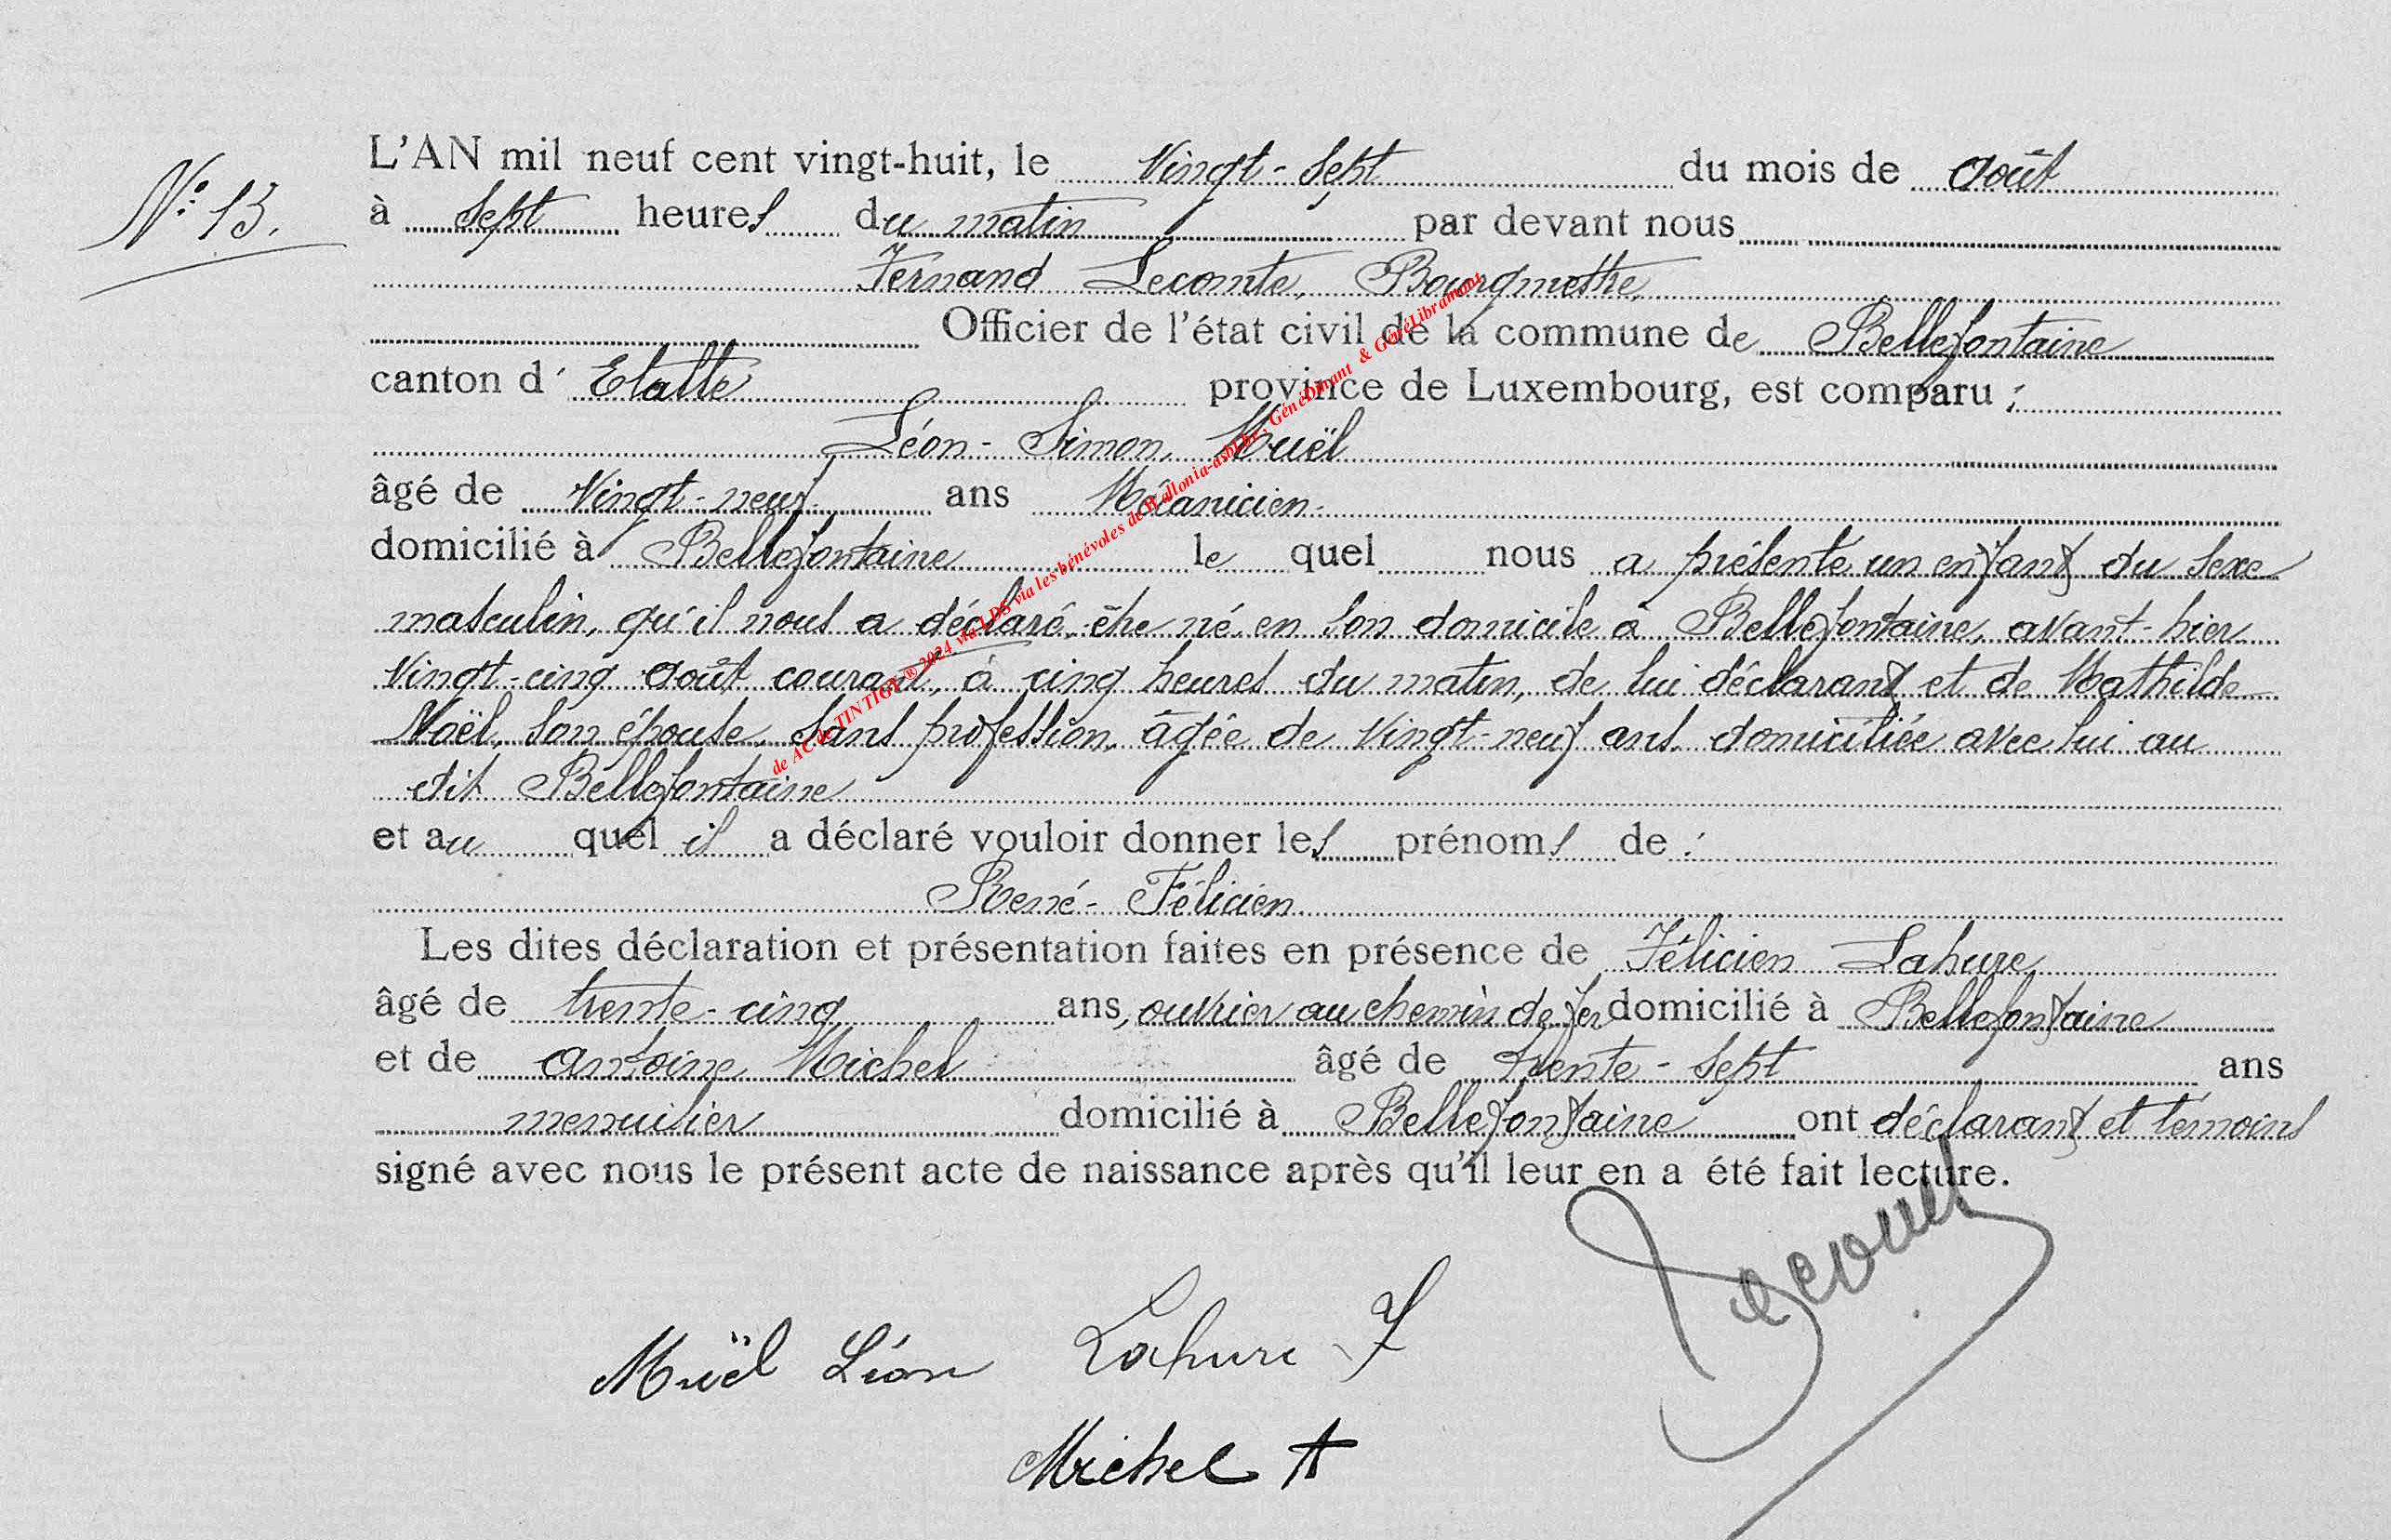 N° 13.
L'AN mil neuf cent vingt-huit, le Vingt-sept du mois de Août
à sept heures du matin par devant nous
Fernand Lecomte, Bourgmestre,
Officier de l'état civil de la commune de Bellefontaine
canton d' Etalle province de Luxembourg, est comparu :
Léon-Simon, Muël
âgé de Vingt-neuf ans Mécanicien
domicilié à Bellefontaine le quel nous a présenté un enfant du sexe
masculin, qu'il nous a déclaré être né en son domicile à Bellefontaine, avant-hier
Vingt-cinq août courant, à cinq heures du matin, de lui déclarant et de Mathilde
Noël, son épouse, sans profession, âgée de Vingt-neuf ans, domiciliée avec lui au
dit Bellefontaine
et au quel il a déclaré vouloir donner les prénoms de :
René-Félicien
Les dites déclaration et présentation faites en présence de Félicien Lahure
âgé de trente-cinq ans, ouvrier au chemin de fer domicilié à Bellefontaine
et de Antoine Michel âgé de trente-sept ans
menuisier domicilié à Bellefontaine ont déclarant et témoins
signé avec nous le présent acte de naissance après qu'il leur en a été fait lecture.
Muël Léon Lahure F
Michel A
de AC de TINTIGNY ® 2024 via LDS via les bénévoles de Wallonia-asbl.be, GénéDinant & GénéLibramont